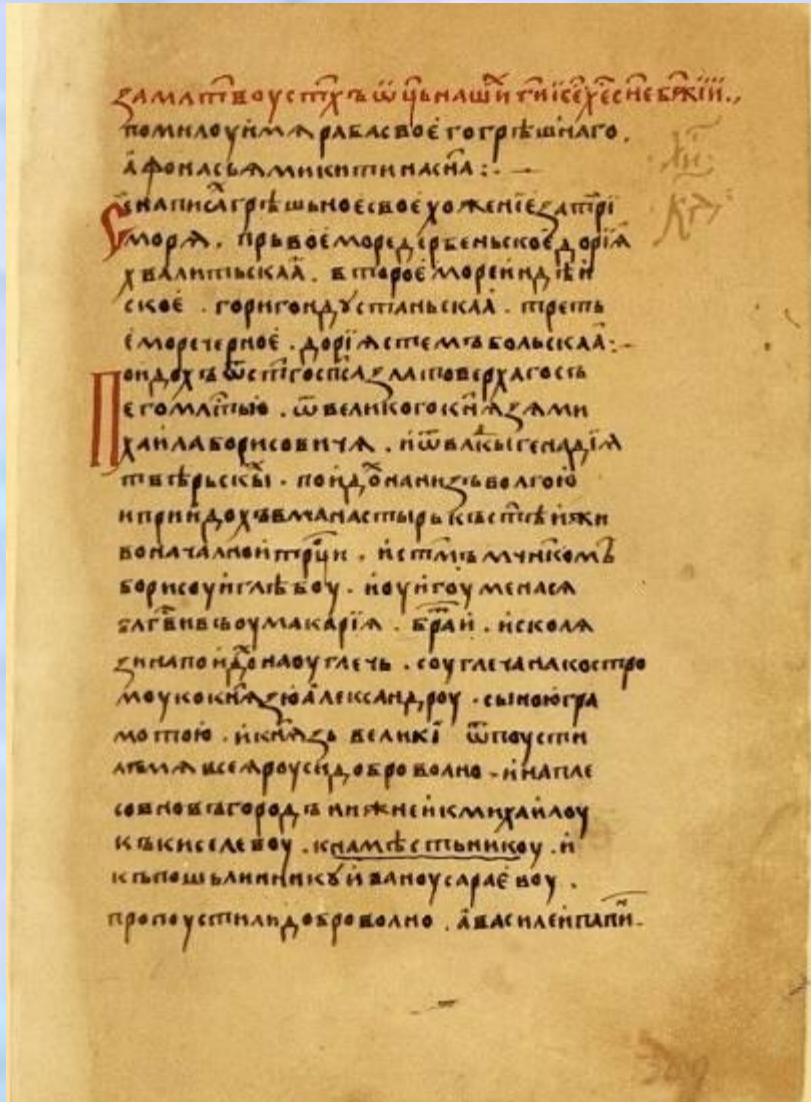 За мл҃тву ст҃хъ ѿц҃ь наши гиі҃се хе҃ сн҃е бж҃їи.,
помилоуи мѧ раба своего грѣшнаго.
аѳонасьѧ микитина сн҃а :·—
Се написа грѣшьное свое хоженїе за три
морѧ . прьвое море дербеньское дорїѧ
хвалитьскаа . второе море индѣи
ское . горигондустаньскаа . треть
е море черное . дорїѧ стемъбольскаа :·—
Поидохъ ѿ ст҃го сп҃са златоверхаго съ
его мл҃тью . ѿ великого кнѧзѧ ми
хаила борисовичѧ . и ѿ влк҃ы генадїѧ
твѣрьскы . поидо на низъ волгою
и приидохъ в манастырь къ ст҃ѣи жи
воначалнои трц҃и . и ст҃мъ мчнкомъ
борисоу и глѣбоу . и оу игоумена сѧ
блг҃вивъ оу макарїѧ . браи . и с колѧ
зина поидо на оуглечь . с оуглеча на костро
моу ко кнѧзю александроу . с ыною гра
мотою . и кнѧзь великі ѿпоусти
лъ мѧ всеѧ роуси доброволно . и на пле
со в новъгородъ нижнеи к михаилоу
къ киселевоу . к намѣстьникоу . и
къ пошьлинникꙋ иваноу сараевоу .
пропоустили доброволно . а василеи папи .